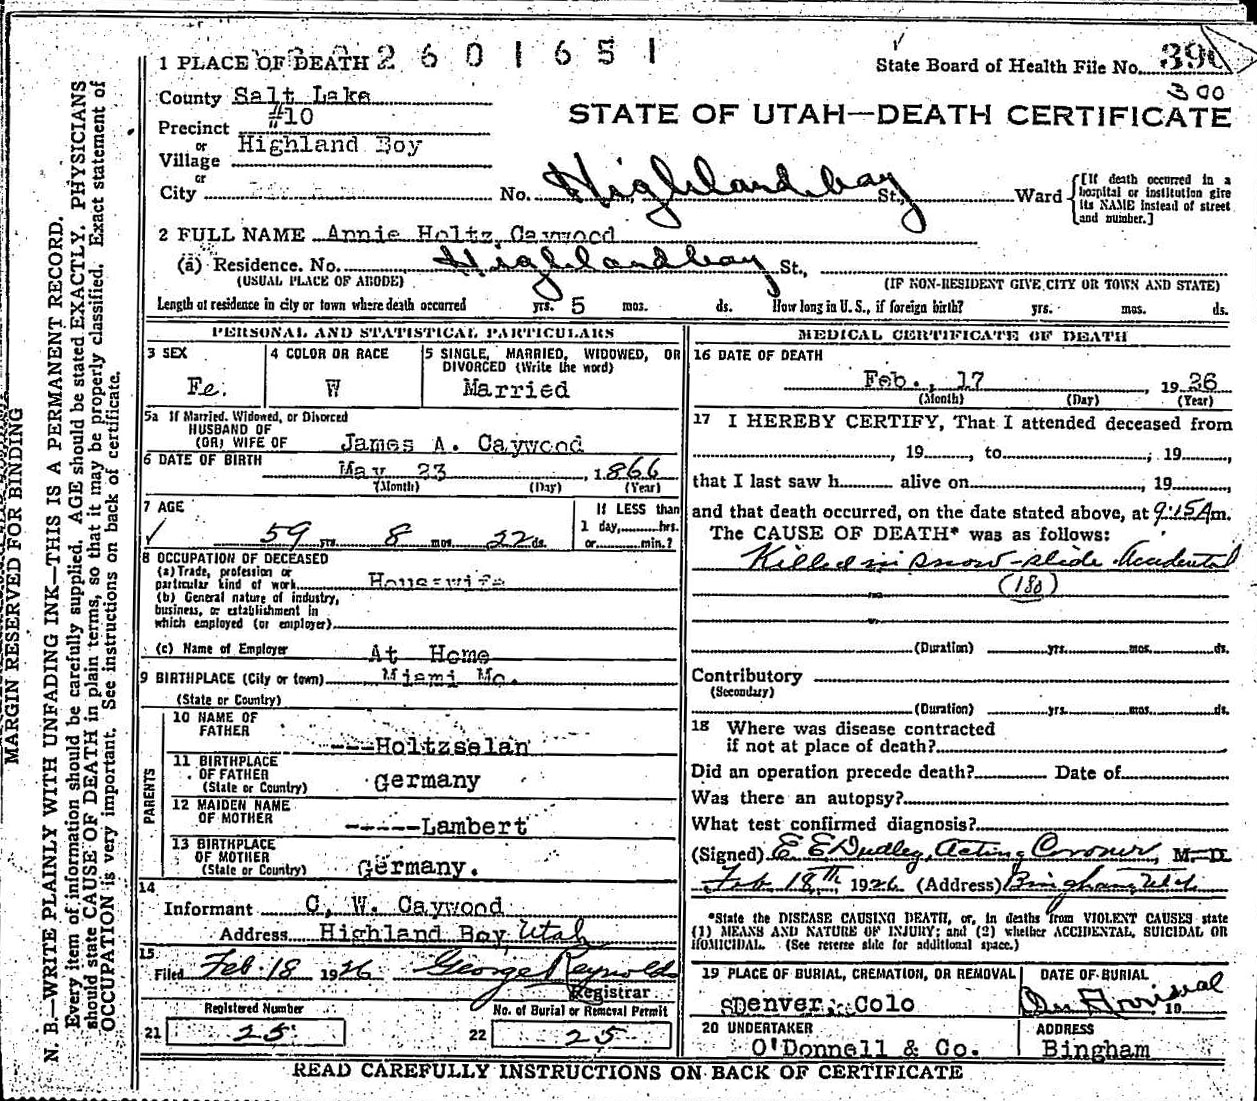 MARGIN RESERVED FOR BINDING
N. B.—WRITE PLAINLY WITH UNFADING INK—THIS IS A PERMANENT RECORD.
Every item of information should be carefully supplied. AGE should be stated EXACTLY. PHYSICIANS
should state CAUSE OF DEATH in plain terms, so that it may be properly classified. Exact statement of
OCCUPATION is very important. See instructions on back of certificate.
1 PLACE OF DEATH 2 6 0 1 6 5 1
State Board of Health File No.
300
County Salt Lake
STATE OF UTAH—DEATH CERTIFICATE
Precinct #10
or
Village Highland Boy
or
City No. Highland boy St., Ward
[If death occurred in a
hospital or institution give
its NAME instead of street
and number.]
2 FULL NAME Annie Holtz Caywood
(a) Residence. No. Highland boy St.,
(USUAL PLACE OF ABODE) (IF NON-RESIDENT GIVE CITY OR TOWN AND STATE)
Length of residence in city or town where death occurred yrs. 5 mos. ds. How long in U. S., if foreign birth? yrs. mos. ds.
PERSONAL AND STATISTICAL PARTICULARS
3 SEX
Fe.
4 COLOR OR RACE
W
5 SINGLE, MARRIED, WIDOWED, OR
DIVORCED (Write the word)
Married
5a If Married, Widowed, or Divorced
HUSBAND OF
(OR) WIFE OF James A. Caywood
6 DATE OF BIRTH May 23, 1866
(Month) (Day) (Year)
7 AGE
59 yrs. 8 mos. 22 ds.
If LESS than
1 day, hrs.
or min.?
8 OCCUPATION OF DECEASED
(a) Trade, profession or
particular kind of work Housewife
(b) General nature of industry,
business, or establishment in
which employed (or employer)
(c) Name of Employer At Home
9 BIRTHPLACE (City or town) Miami Mo.
(State or Country)
PARENTS
10 NAME OF
FATHER ---Holtzselan
11 BIRTHPLACE
OF FATHER
(State or Country) Germany
12 MAIDEN NAME
OF MOTHER -----Lambert
13 BIRTHPLACE
OF MOTHER
(State or Country) Germany.
14
Informant C. W. Caywood
Address Highland Boy, Utah
15
Filed Feb. 18 1926 George Reynolds
Registrar
Registered Number
21 25
No. of Burial or Removal Permit
22 25
MEDICAL CERTIFICATE OF DEATH
16 DATE OF DEATH
Feb., 17, 1926
(Month) (Day) (Year)
17 I HEREBY CERTIFY, That I attended deceased from
, 19 , to ; 19 ,
that I last saw h alive on , 19 ,
and that death occurred, on the date stated above, at 9:15 Am.
The CAUSE OF DEATH* was as follows:
Killed in snow-slide Accidental
(180)
(Duration) yrs. mos. ds.
Contributory
(Secondary)
(Duration) yrs. mos. ds.
18 Where was disease contracted
if not at place of death?
Did an operation precede death? Date of
Was there an autopsy?
What test confirmed diagnosis?
(Signed) E E Dudley, Acting Coroner, M. D.
Feb 18th, 1926 (Address) Bingham Utah
*State the DISEASE CAUSING DEATH, or, in deaths from VIOLENT CAUSES state
(1) MEANS AND NATURE OF INJURY; and (2) whether ACCIDENTAL, SUICIDAL OR
HOMICIDAL. (See reverse side for additional space.)
19 PLACE OF BURIAL, CREMATION, OR REMOVAL
Denver, Colo
DATE OF BURIAL
On Arrival 19
20 UNDERTAKER
O'Donnell & Co.
ADDRESS
Bingham
READ CAREFULLY INSTRUCTIONS ON BACK OF CERTIFICATE